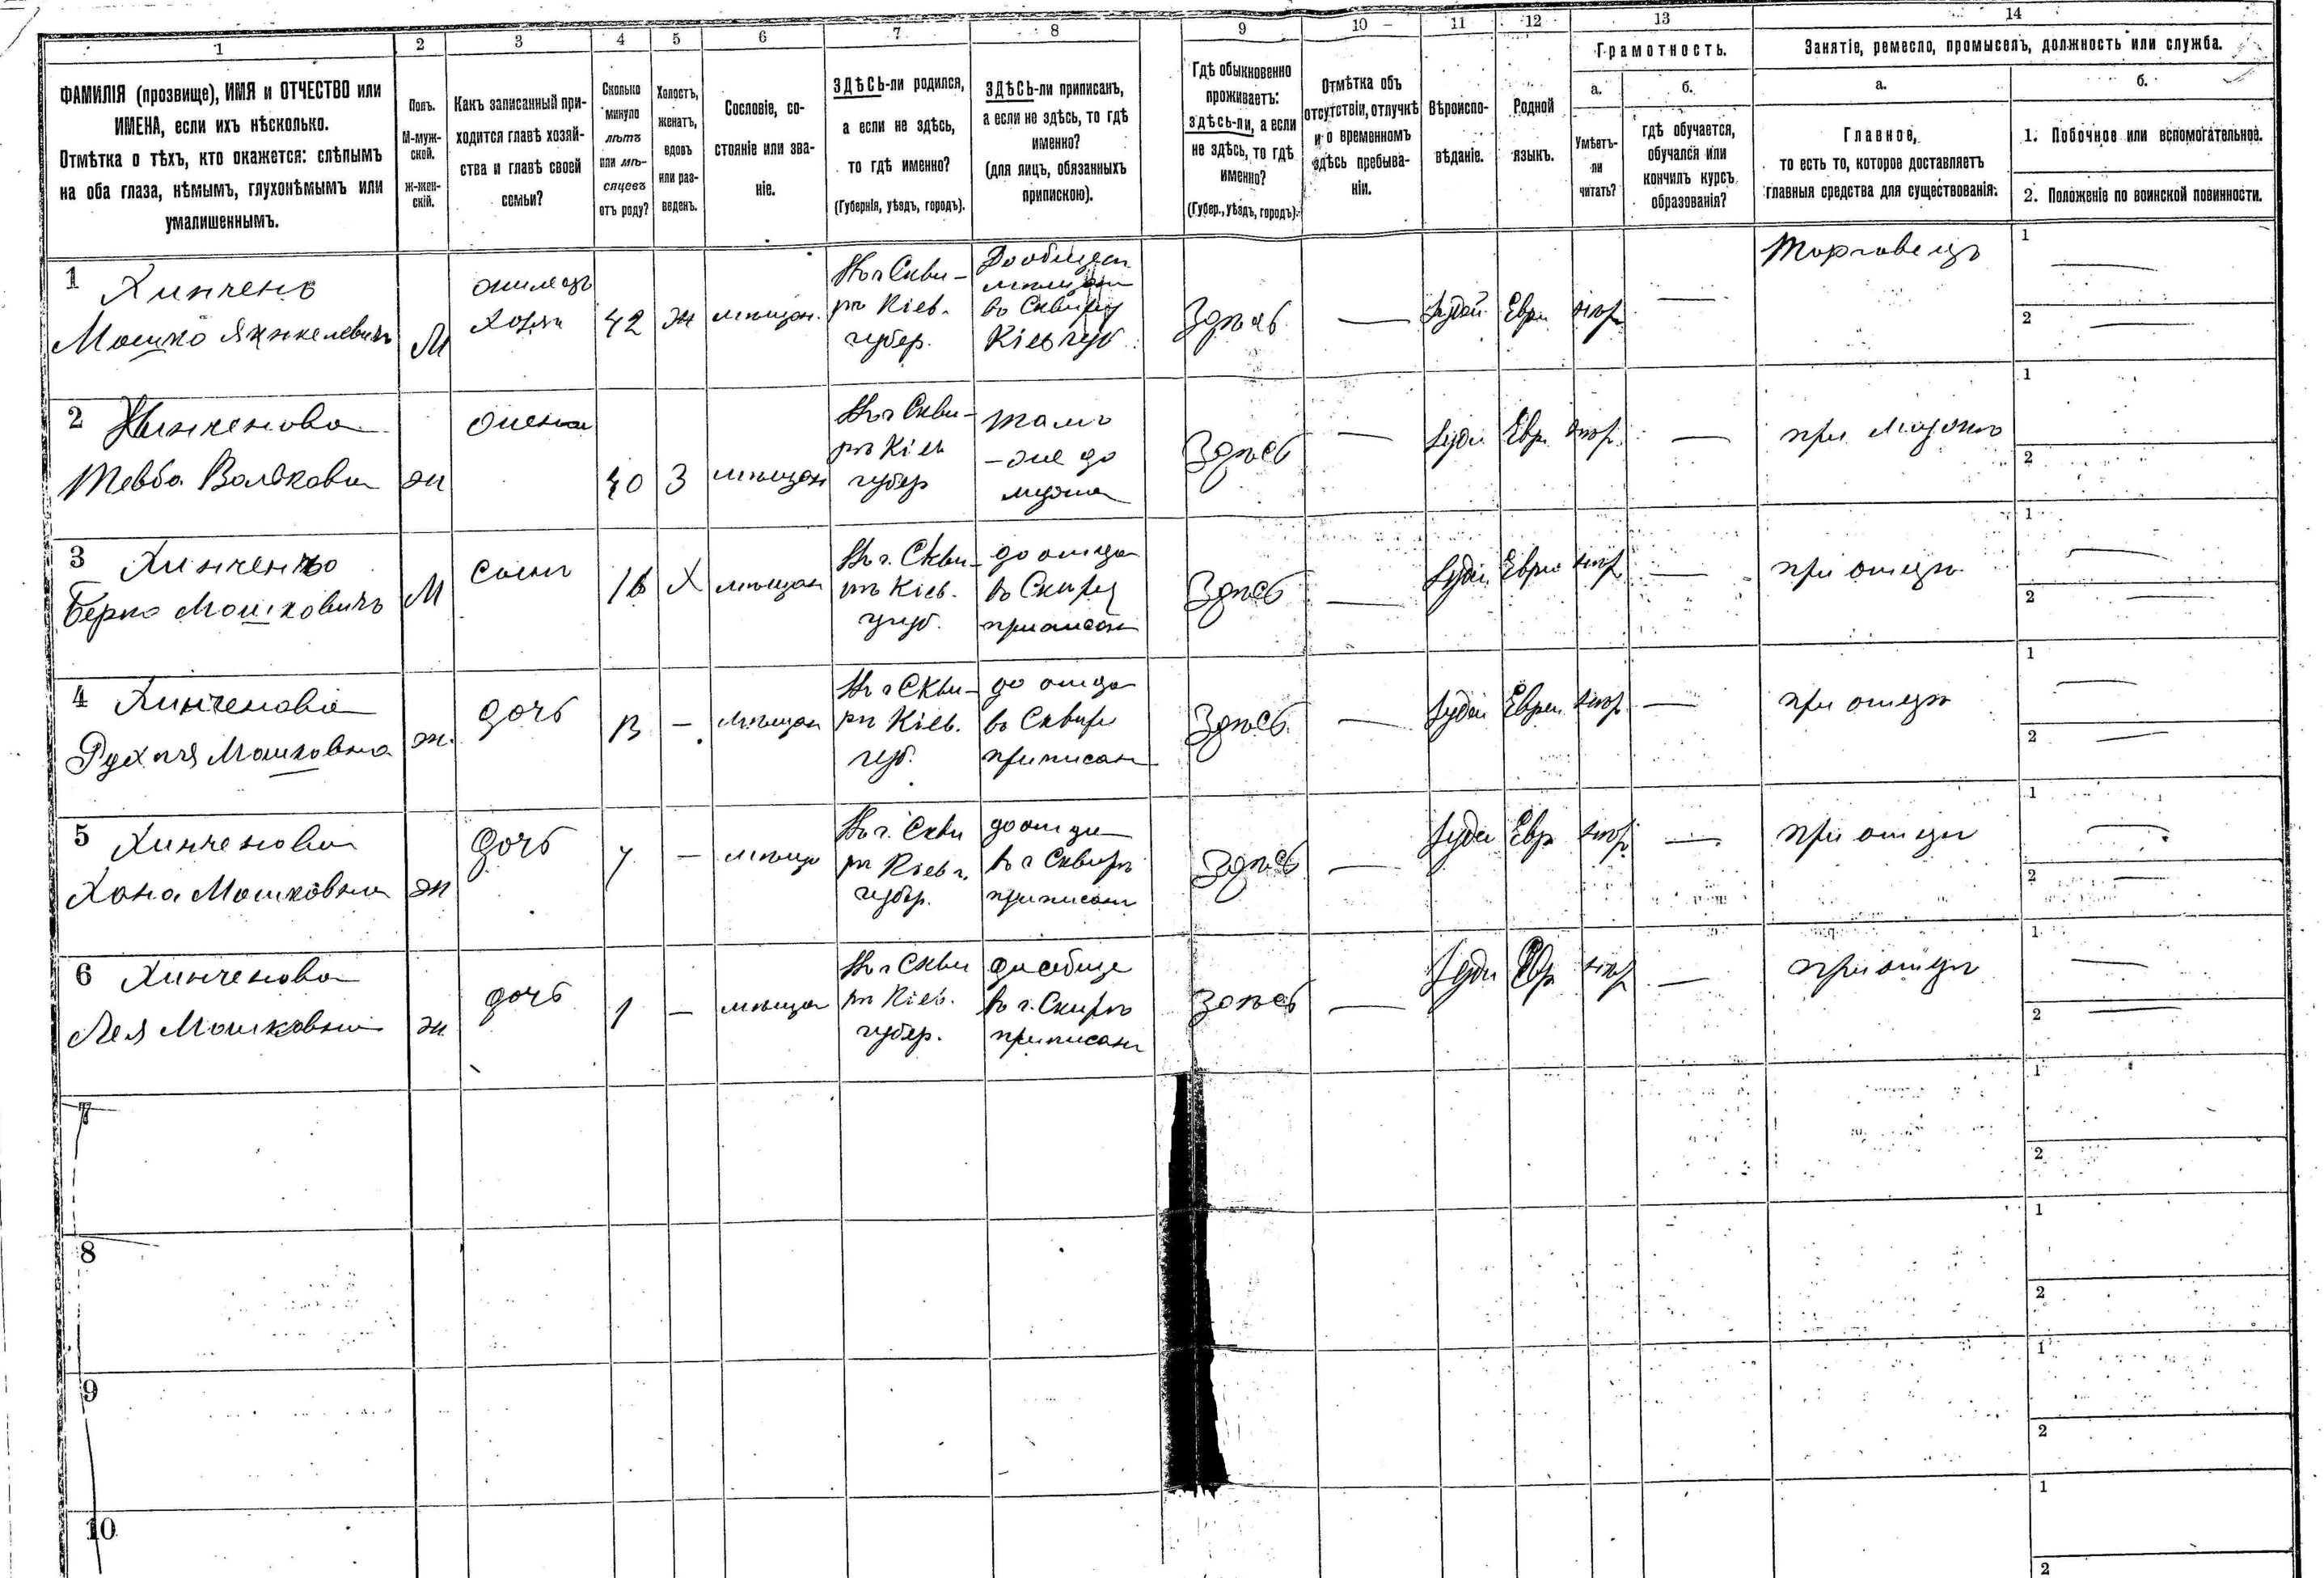 1 2 3 4 5 6 7 8 9 10 11 12 13 14
ФАМИЛІЯ (прозвище), ИМЯ и ОТЧЕСТВО или
ИМЕНА, если ихъ нѣсколько.
Отмѣтка о тѣхъ, кто окажется: слѣпымъ
на оба глаза, нѣмымъ, глухонѣмымъ или
умалишеннымъ.
Полъ.
М-муж-
ской.
Ж-жен-
скій.
Какъ записанный при-
ходится главѣ хозяй-
ства и главѣ своей
семьи?
Сколько
минуло
лѣтъ
или мѣ-
сяцевъ
отъ роду?
Холостъ,
женатъ,
вдовъ
или раз-
веденъ.
Сословіе, со-
стояніе или зва-
ніе.
ЗДѢСЬ-ли родился,
а если не здѣсь,
то гдѣ именно?
(Губернія, уѣздъ, городъ).
ЗДѢСЬ-ли приписанъ,
а если не здѣсь, то гдѣ
именно?
(для лицъ, обязанныхъ
припискою).
Гдѣ обыкновенно
проживаетъ:
здѣсь-ли, а если
не здѣсь, то гдѣ
именно?
(Губер., уѣздъ, городъ).
Отмѣтка объ
отсутствіи, отлучкѣ
и о временномъ
здѣсь пребыва-
ніи.
Вѣроиспо-
вѣданіе.
Родной
языкъ.
Грамотность.
а.
Умѣетъ-
ли
читать?
б.
гдѣ обучается,
обучался или
кончилъ курсъ
образованія?
Занятіе, ремесло, промыселъ, должность или служба.
а.
Главное,
то есть то, которое доставляетъ
главныя средства для существованія.
б.
1. Побочное или вспомогательное.
2. Положеніе по воинской повинности.
1 Хинченъ
Мошко Янкелевичъ
М
хозяи
42
ж
мѣщан.
Въ г Скви-
рѣ Кіев.
губер.
въ Сквиру
Кіев губ
Здѣсь
Іудей
Евре
Торговецъ
1
2
2 Хинченова
Тевба Волькова
ж
жена
40
З
мѣщан
Въ г Скви-
рѣ Кіев
губер
тамъ
-же до
мужа
Здѣсь
Іуде
Евр
при мужѣ
1
2
3
Берко Мошковичъ
М
сынъ
16
Х
мѣщан
Въ г. Скви-
рѣ Кіев.
губ.
до отца
въ Сквиру
приписан
Здѣсь
Іудеи
Евре
при отцѣ
1
2
4 Хинченова
Рухля Мошковна
ж.
дочь
13
–
мѣщан
Въ г Скви-
рѣ Кіев.
губ.
до отца
въ Сквирѣ
приписан
Здѣсь
Іудеи
Евреи
при отцѣ
1
2
5 Хинченова
Хана Мошковна
ж
дочь
7
–
мѣща
Въ г. Скви
рѣ Кіев г.
губер.
до отца
въ г Сквирѣ
приписан
Здѣсь
Іудеи
Евр
при отцѣ
1
2
6 Хинченова
Лея Мошковна
ж
дочь
1
–
мѣща
Въ г Скви
рѣ Кіев.
губер.
въ г. Сквирѣ
приписан
Здѣсь
Іуде
Евр
при отцѣ
1
2
7
1
2
8
1
2
9
1
2
10
1
2